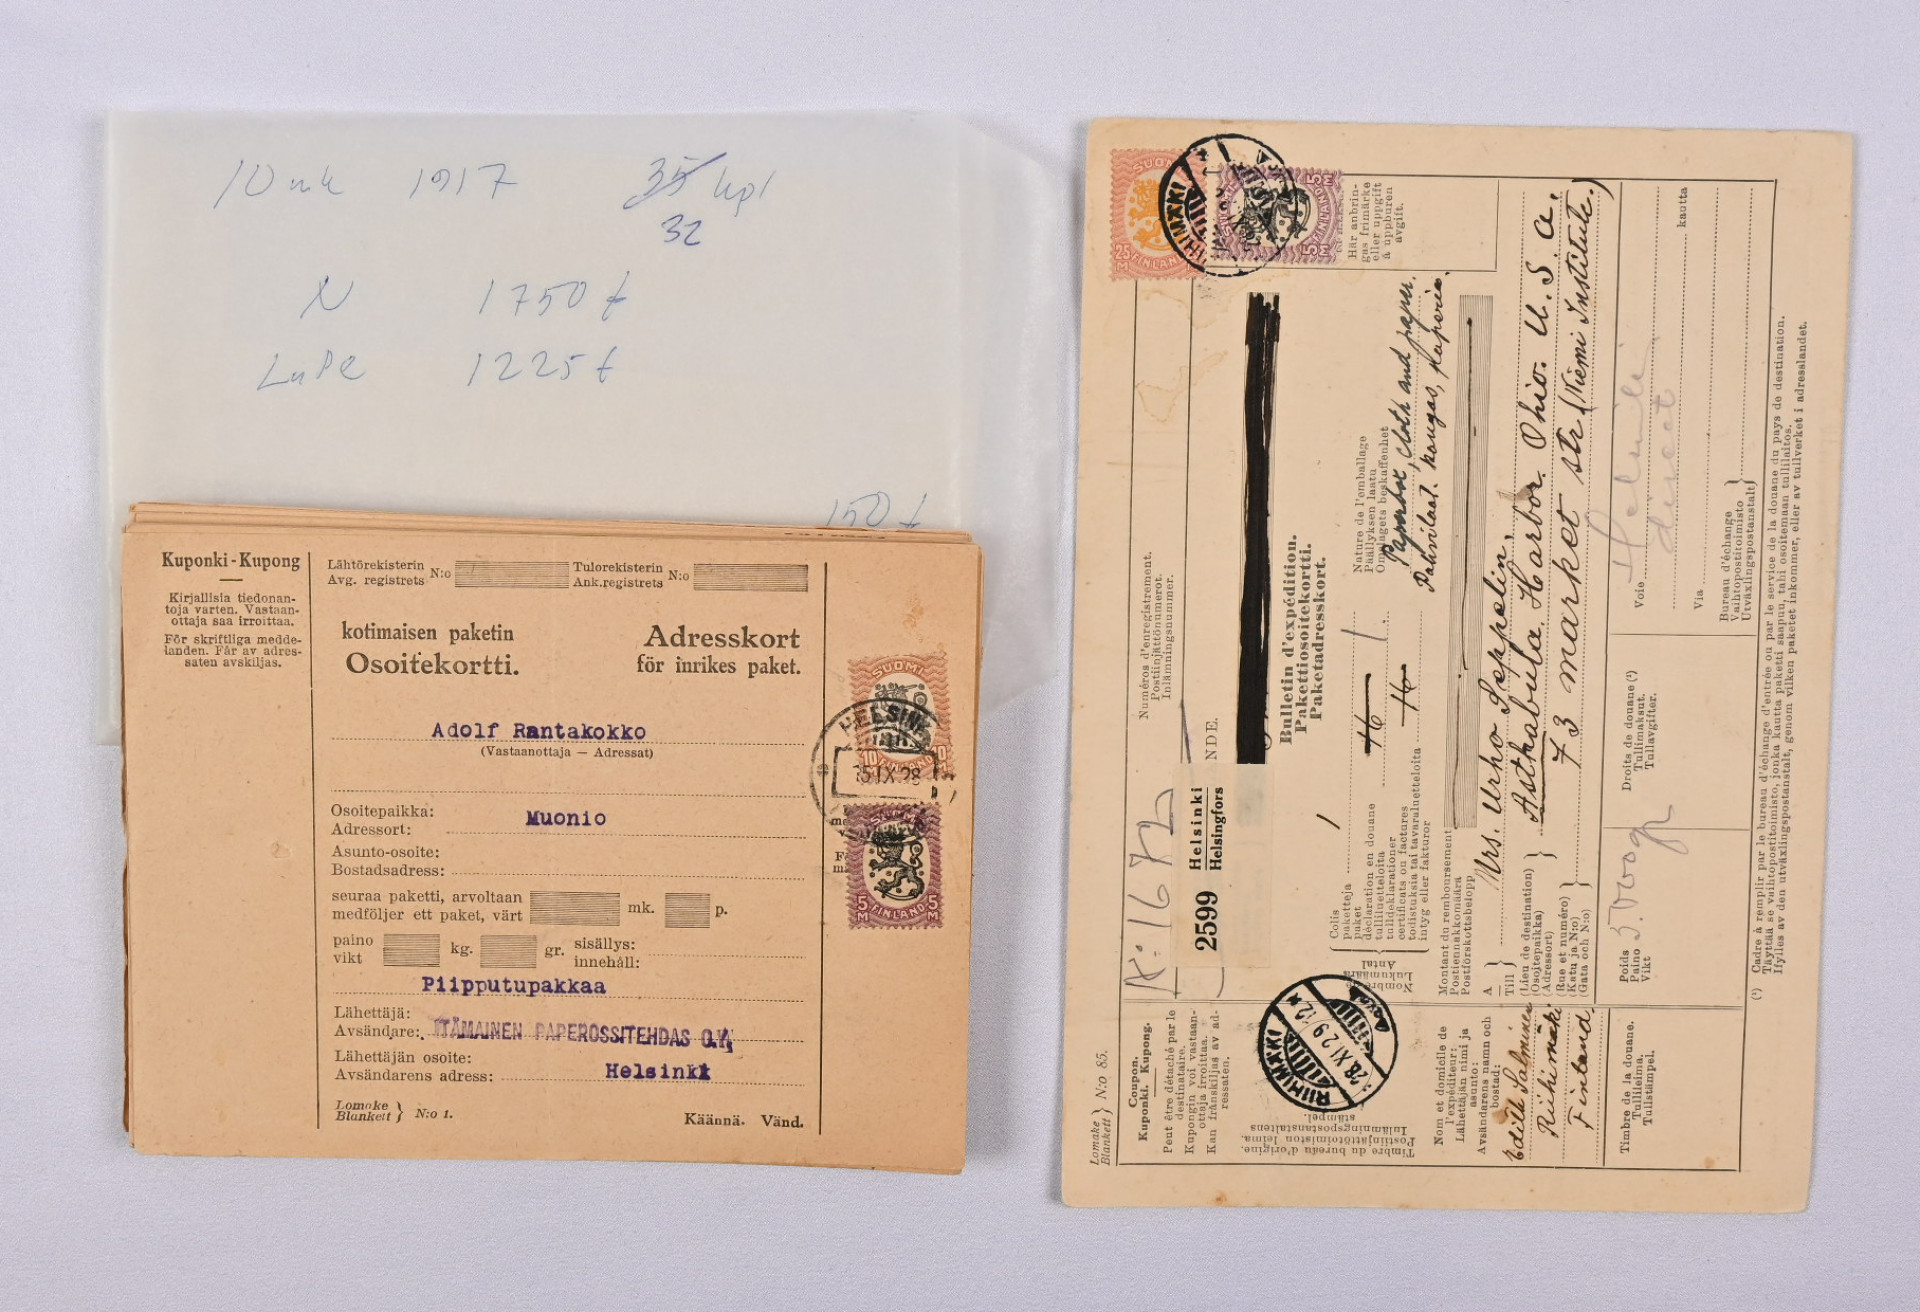 10 mk 1917 35 kpl
32
N 1750 t
LaPe 1225 t
150 t
Kuponki - Kupong
Kirjallisia tiedonan-
toja varten. Vastaan-
ottaja saa irroittaa.
För skriftliga medde-
landen. Får av adres-
saten avskiljas.
Lähtörekisterin
Avg. registrets N:o
Tulorekisterin
Ank.registrets N:o
kotimaisen paketin
Osoitekortti.
Adresskort
för inrikes paket.
Adolf Rantakokko
(Vastaanottaja — Adressat)
Osoitepaikka:
Adressort:
Muonio
Asunto-osoite:
Bostadsadress:
seuraa paketti, arvoltaan
medföljer ett paket, värt
mk. p.
paino
vikt
kg. gr.
sisällys:
innehåll:
Piipputupakkaa
Lähettäjä:
Avsändare:
ITÄMAINEN PAPEROSSITEHDAS O.Y.
Lähettäjän osoite:
Avsändarens adress:
Helsinki
Lomake
Blankett } N:o 1.
Käännä. Vänd.
SUOMI
10 10
FINLAND
HELSINKI
15.IX.28
SUOMI
5 M 5 M
FINLAND
SUOMI
25 M
FINLAND
5 M 5 M
FINLAND
RIIHIMÄKI
Här anbrin-
gas frimärke
eller uppgift
å uppburen
avgift.
Numéros d'enregistrement.
Postiinjättönumerot.
Inlämningsnummer.
K: 1672
NDE.
2599 Helsinki
Helsingfors
Bulletin d'expédition.
Pakettiosoitekortti.
Paketadresskort.
Colis
paketteja
paket
déclaration en douane
tulliluetteloita
tulldeklarationer
certificats ou factures
todistuksia tai tavaraluetteloita
intyg eller fakturor
Nombre de
Lukumäärä
Antal
1
1.
Nature de l'emballage
Päällyksen laatu
Omslagets beskaffenhet
Paperbox, cloth and paper.
Pahvilaat. kangas, paperia.
Montant du remboursement
Postiennakkomäärä
Postförskottsbelopp
A
Till } Mrs. Urho Seppelin,
(Lieu de destination)
(Osoitepaikka)
(Adressort) } Asthabula. Harbor. Ohio. U. S. a.
(Rue et numéro)
(Katu ja N:o)
(Gata och N:o) } 73 market str (Niemi Institute.)
Poids
Paino
Vikt
5.000 gr
Droits de douane (¹)
Tullimaksut.
Tullavgifter.
Voie
direct
Via
kautta
Bureau d'échange
Vaihtopostitoimisto
Utväxlingspostanstalt }
(¹) Cadre à remplir par le bureau d'échange d'entrée ou par le service de la douane du pays de destination.
Täyttää se vaihtopostitoimisto, jonka kautta paketti saapuu, tahi osoitemaan tullilaitos.
Ifylles av den utväxlingspostanstalt, genom vilken paketet inkommer, eller av tullverket i adresslandet.
Lomake
Blankett } N:o 85.
Coupon.
Kuponki. Kupong.
Peut être détaché par le
destinataire.
Kupongin voi vastaan-
ottaja irroittaa.
Kan frånskiljas av ad-
ressaten.
RIIHIMÄKI
28.XI.29.12
Timbre du bureau d'origine.
Postiinjättötoimiston leima.
Inlämningspostanstaltens
stämpel.
Nom et domicile de
l'expéditeur:
Lähettäjän nimi ja
asunto:
Avsändarens namn och
bostad:
Edith Salminen
Riihimäki
Finland.
Timbre de la douane.
Tullileima.
Tullstämpel.